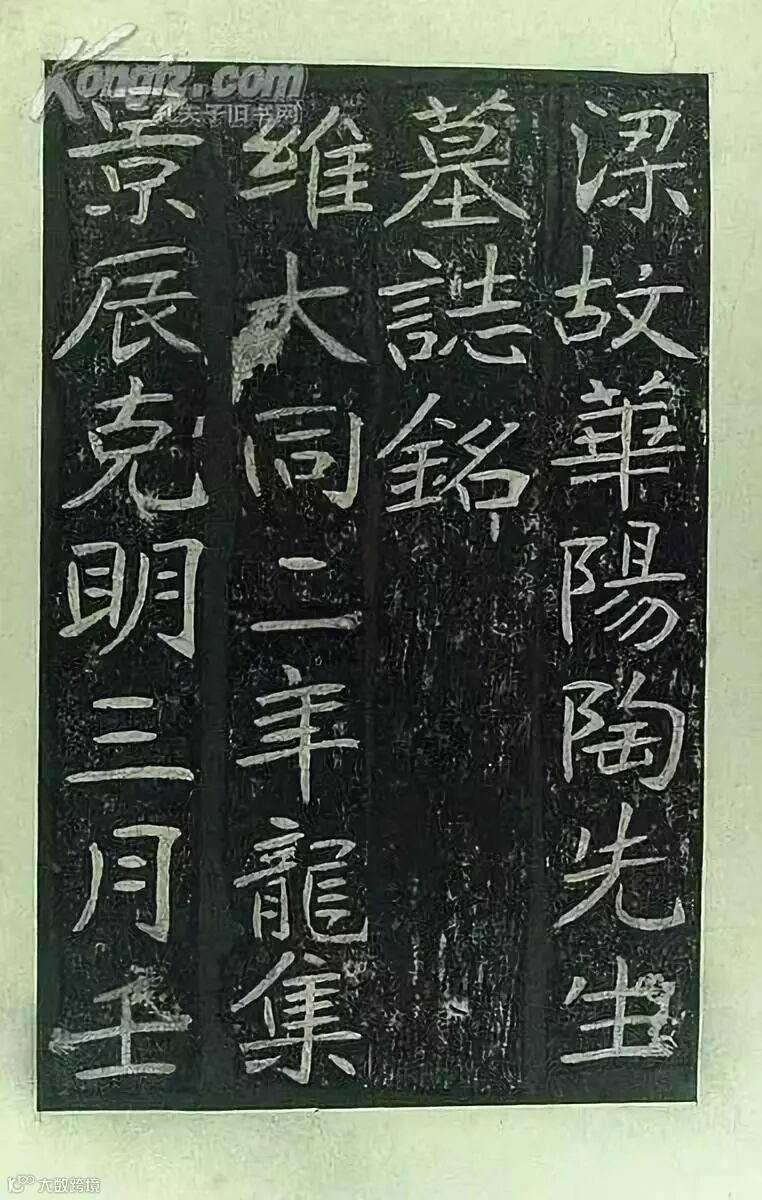 梁故華陽陶先生
墓誌銘
維大同二年龍集
景辰克明三月壬
Kongfz.com
孔夫子旧书网
大数跨境